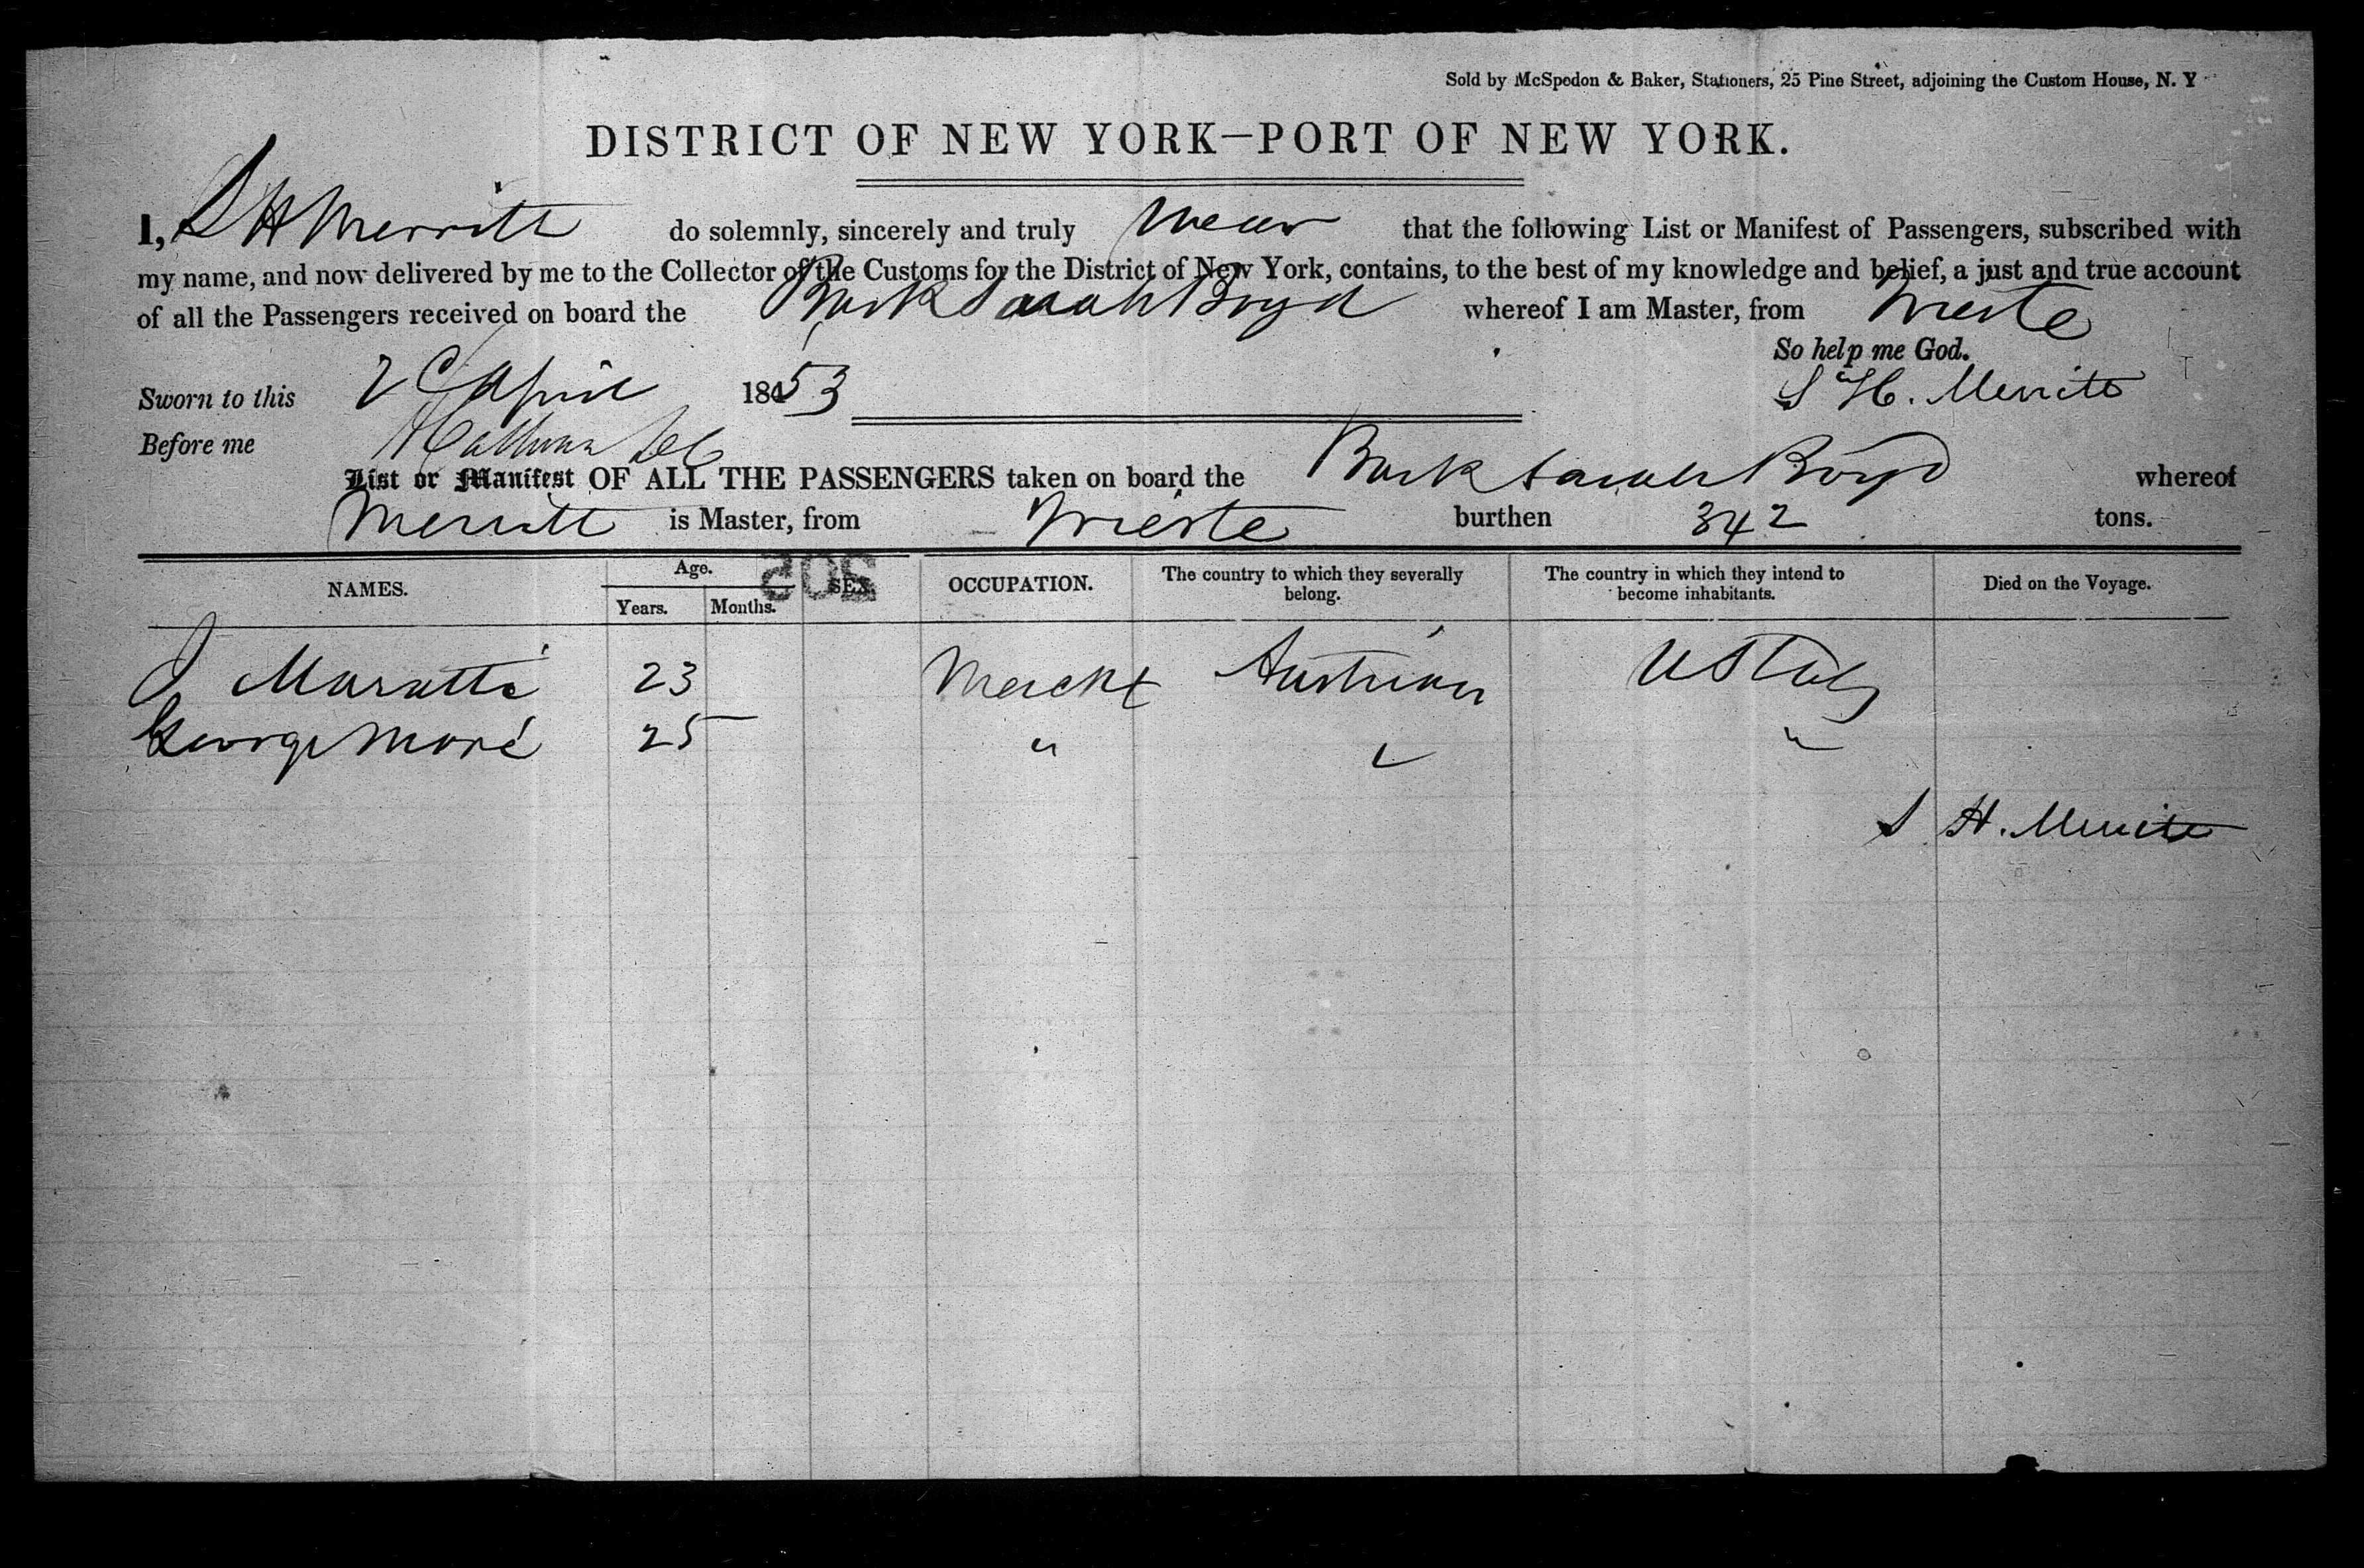 Sold by McSpedon & Baker, Stationers, 25 Pine Street, adjoining the Custom House, N. Y
DISTRICT OF NEW YORK—PORT OF NEW YORK.
I, S H Merritt do solemnly, sincerely and truly swear that the following List or Manifest of Passengers, subscribed with
my name, and now delivered by me to the Collector of the Customs for the District of New York, contains, to the best of my knowledge and belief, a just and true account
of all the Passengers received on board the Bark Sarah Boyd whereof I am Master, from Trieste
So help me God.
Sworn to this April 1853 S H. Merritt
Before me
List or Manifest OF ALL THE PASSENGERS taken on board the Bark Sarah Boyd whereof
Merritt is Master, from Trieste burthen 342 tons.
NAMES. Age. Years. Months. SEX. OCCUPATION. The country to which they severally belong. The country in which they intend to become inhabitants. Died on the Voyage.
J 23 Mercht Austrian U States
George Moré 25 " " "
S H. Merritt